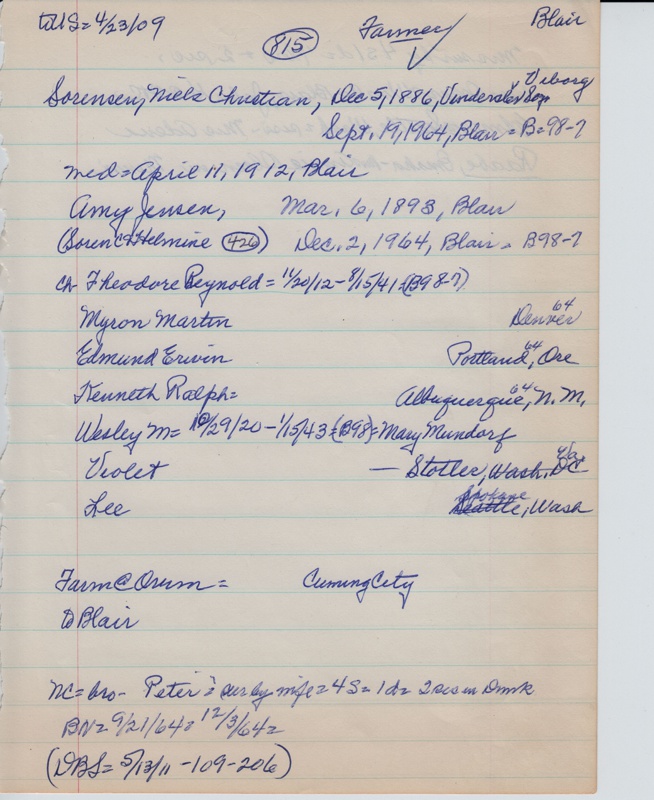 to US = 4/23/09
815
Farmer
Blair
Sorensen, Niels Christian, Dec 5, 1886, Viborg
Sept. 19, 1964, Blair = B=98-7
med = April 11, 1912, Blair
Amy Jensen, Mar. 6, 1893, Blair
(Soren C & Helmine 426) Dec. 2, 1964, Blair = B98-7
ch Theodore Reynold = 11/20/12 - 8/15/41 = (B98-7)
Myron Martin Denver 64
Edmund Ervin Portland, 64 Ore
Kenneth Ralph = Albuquerque, 64 N.M.
Wesley M = 10/29/20 - 1/15/43 = (B98) = Mary Mundorf
Violet — Stotler, Wash. DC
Lee Spokane Seattle, Wash
Farm @ Orum = Cuming City
to Blair
NC = bro - Peter = sur by wife = 4S = 1d = 2 sis in Dmk
BN = 9/21/64 = 12/3/64 =
(DBS = 5/13/11 - 109-206)